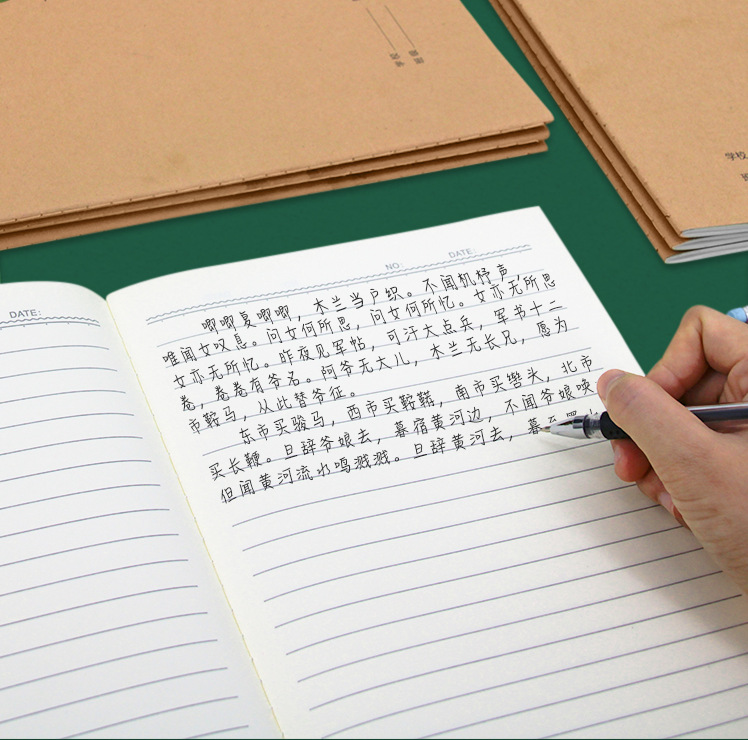 学校
DATE:
NO:
DATE:
唧唧复唧唧，木兰当户织。不闻机杼声，
唯闻女叹息。问女何所思，问女何所忆。女亦无所思
女亦无所忆。昨夜见军帖，可汗大点兵，军书十二
卷，卷卷有爷名。阿爷无大儿，木兰无长兄，愿为
市鞍马，从此替爷征。
东市买骏马，西市买鞍鞯，南市买辔头，北市
买长鞭。旦辞爷娘去，暮宿黄河边，不闻爷娘唤
但闻黄河流水鸣溅溅。旦辞黄河去，暮